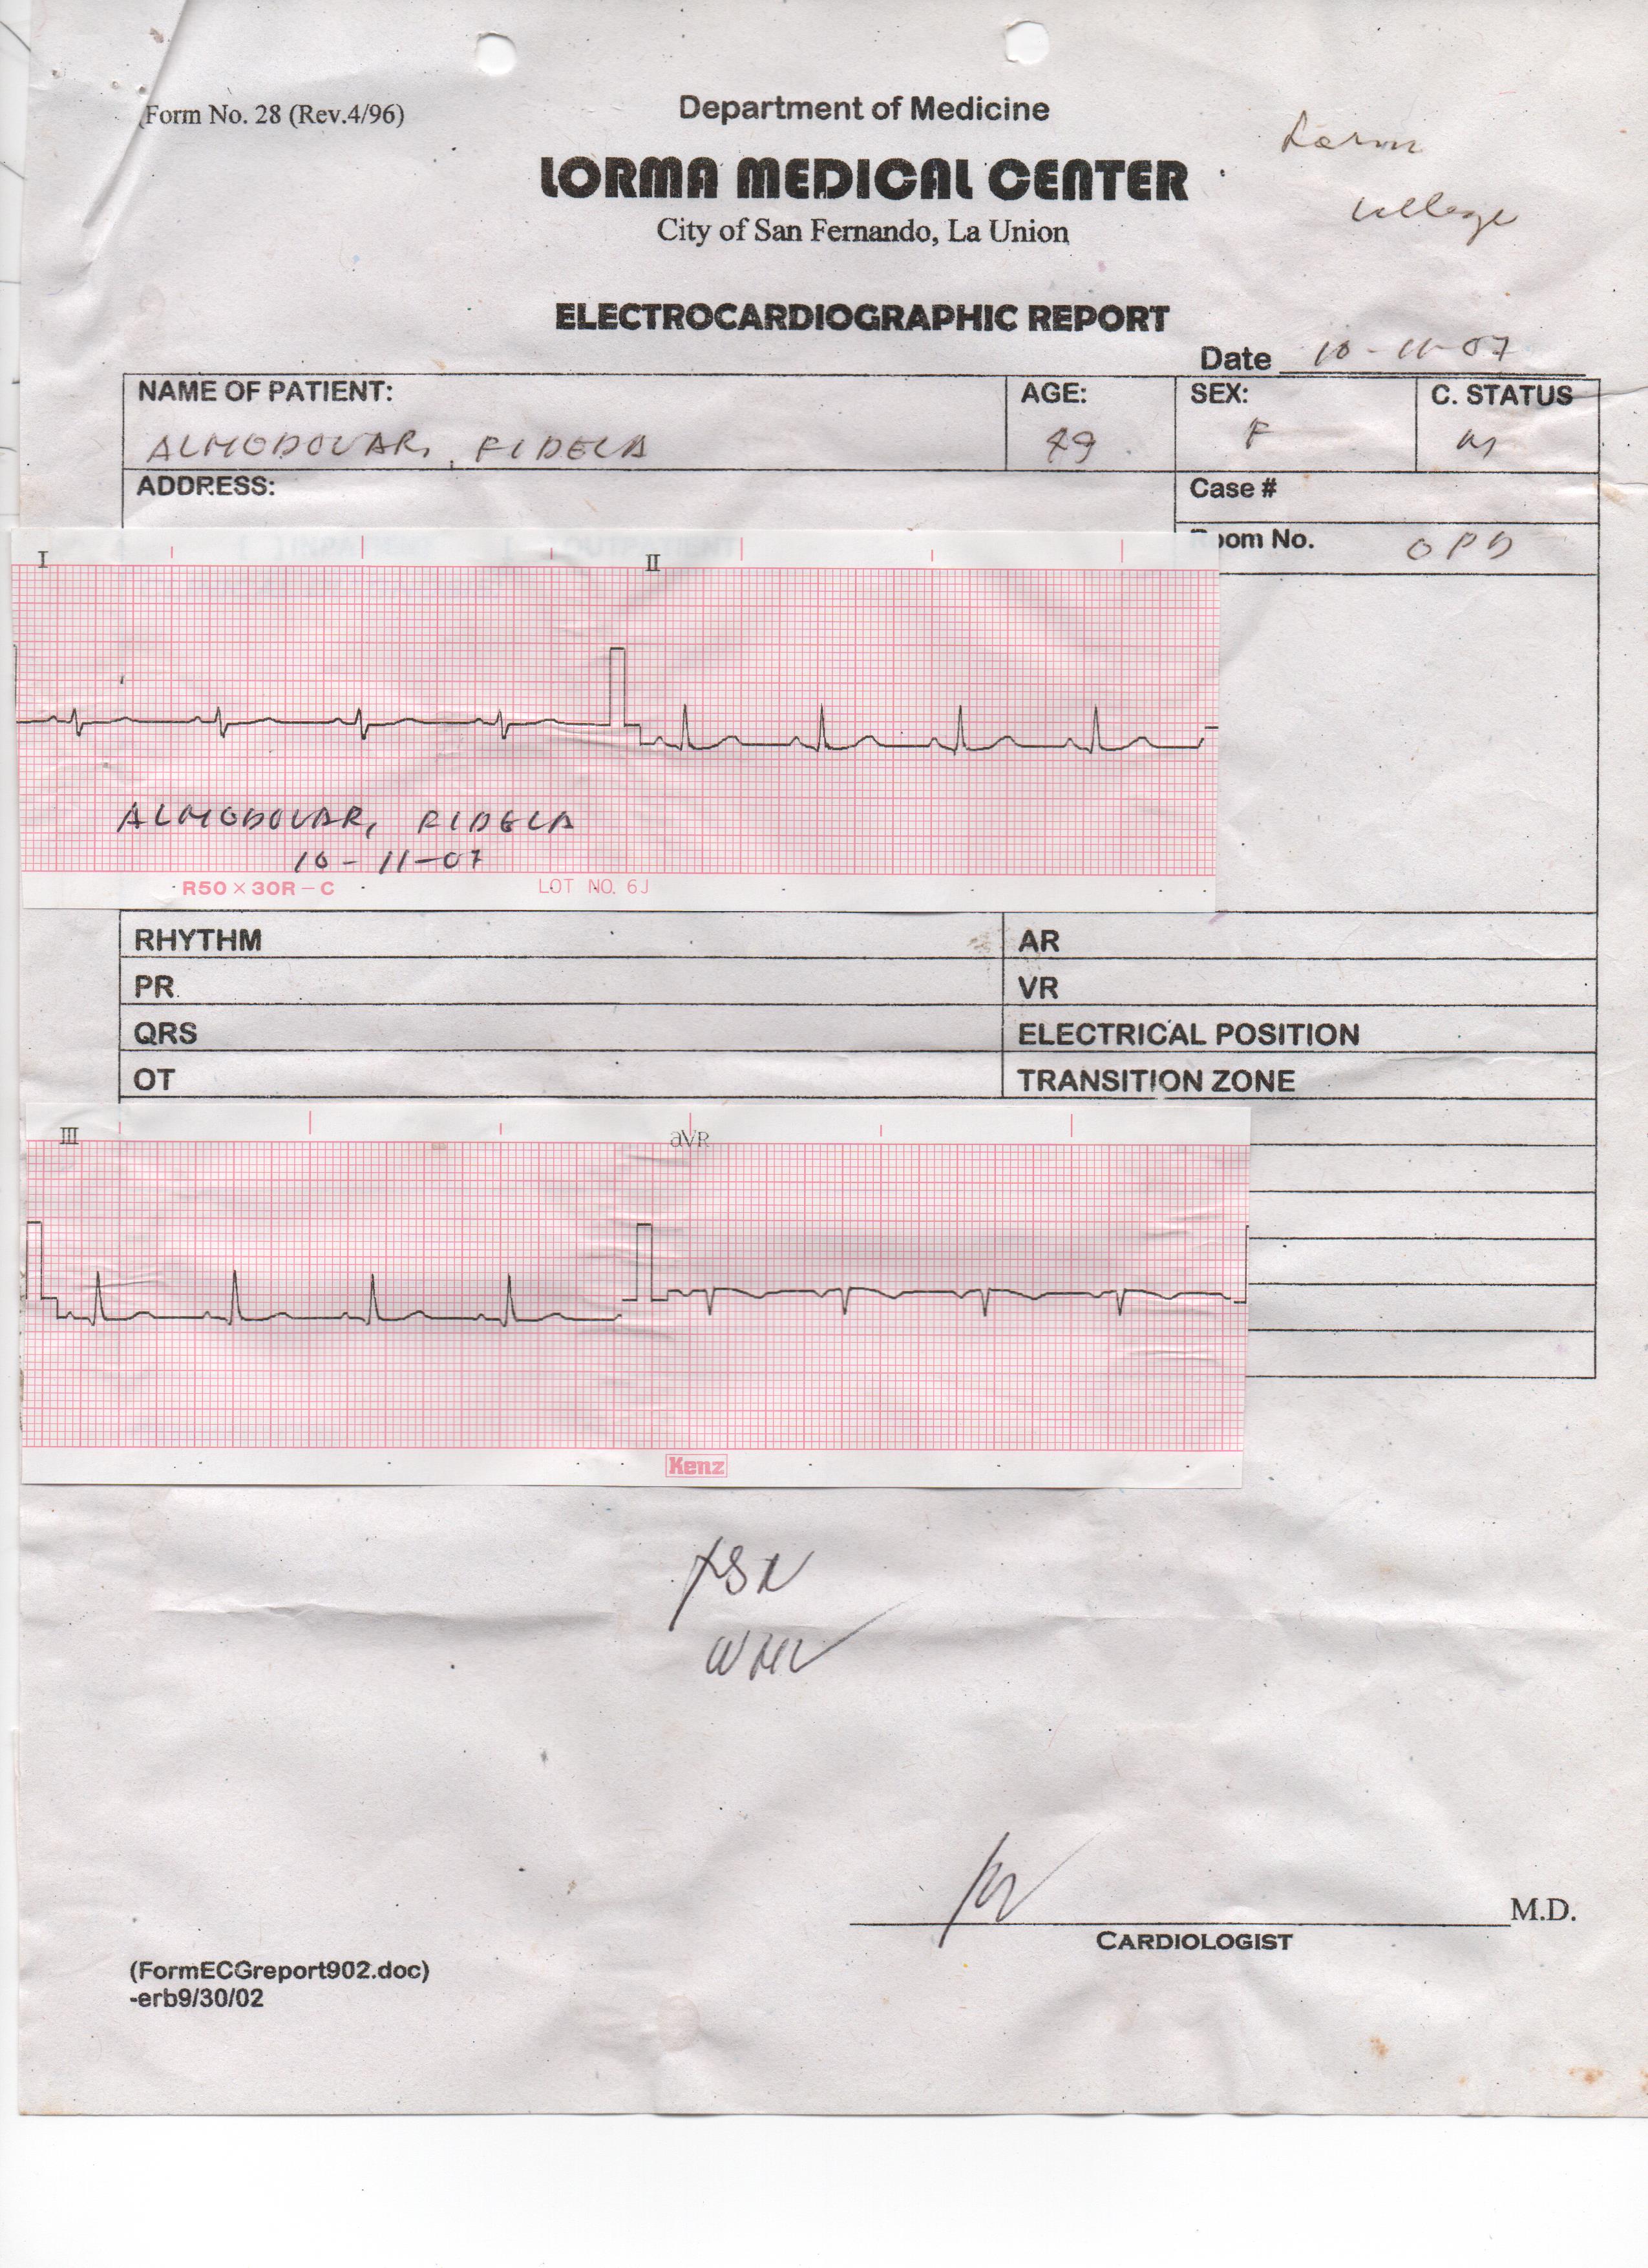 (Form No. 28 (Rev.4/96)
Department of Medicine
LORMA MEDICAL CENTER
City of San Fernando, La Union
college
ELECTROCARDIOGRAPHIC REPORT
Date 10-11-07
NAME OF PATIENT: AGE: SEX: C. STATUS
ALMODOVAR, FIDELA 49 F M
ADDRESS: Case #
[ ]INPATIENT [ ]OUTPATIENT
Room No. OPD
I II
ALMODOVAR, FIDELA
10-11-07
R50×30R-C LOT NO. 6J
RHYTHM AR
PR VR
QRS ELECTRICAL POSITION
QT TRANSITION ZONE
III aVR
Kenz
WNL
M.D.
CARDIOLOGIST
(FormECGreport902.doc)
-erb9/30/02